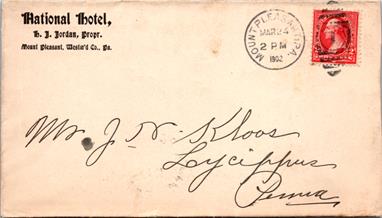 National Hotel,
H. J. Jordan, Propr.
Mount Pleasant, Westm'd Co., Pa.
MOUNT PLEASANT, PA.
MAR 24
2 PM
1902
Mr J. N. Kloos
Lycippus
Penna